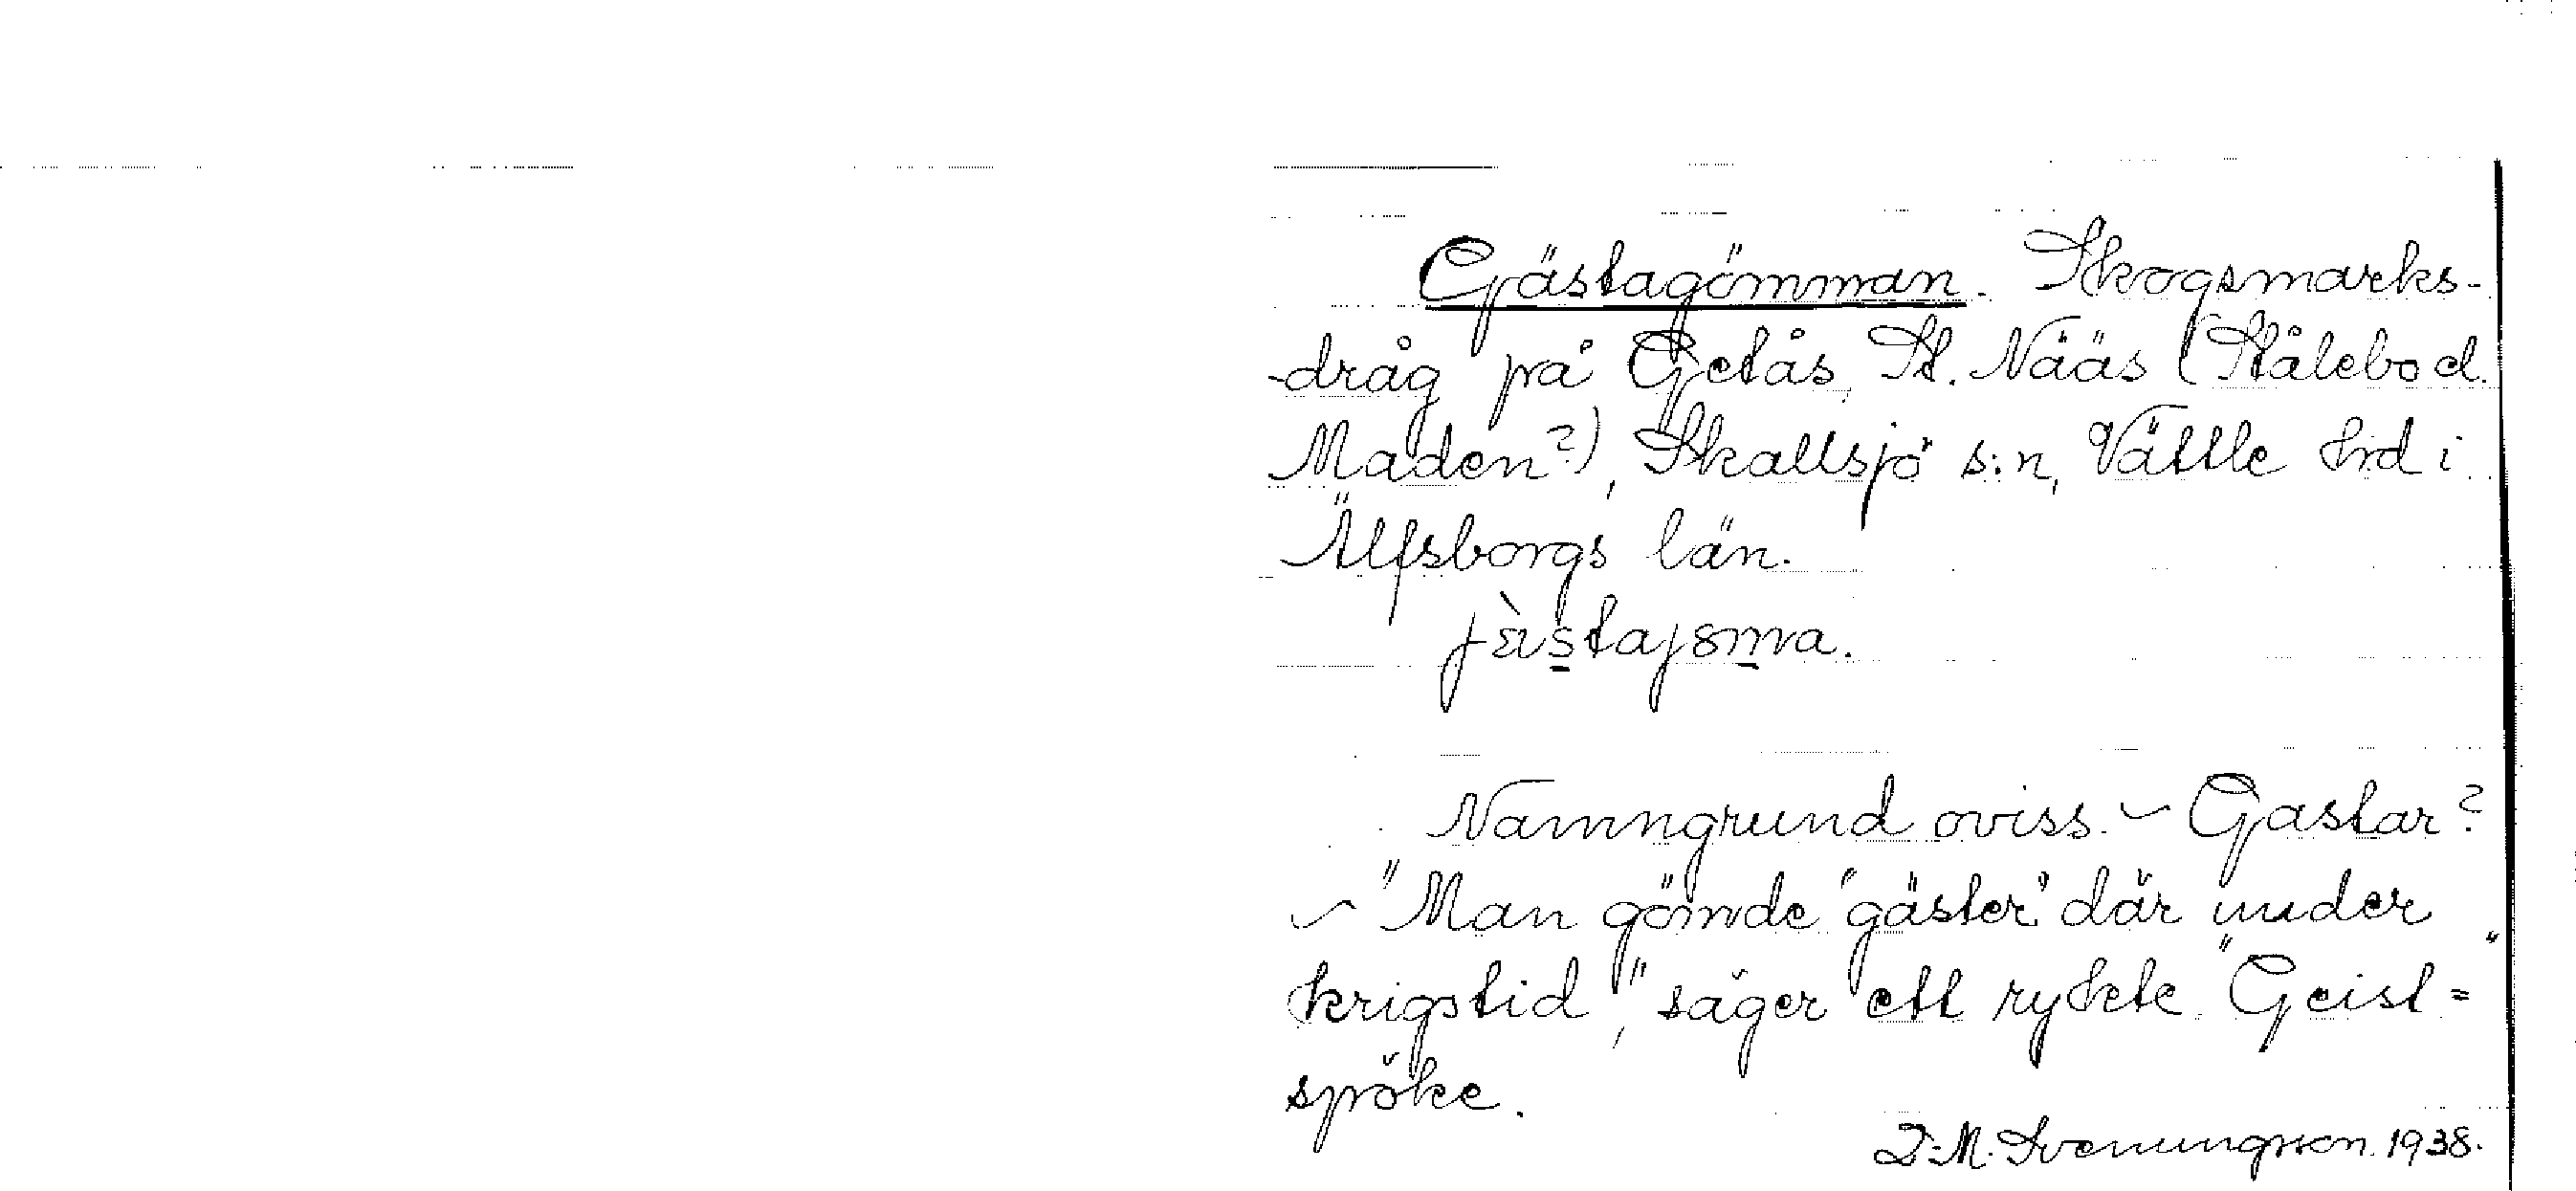 Gästagömman. Skogsmarks-
dråg på Getås, St. Nääs (Stålebo el.
Maden?), Skallsjö s:n, Vättle hd i
Älfsborgs län.
jὲstajɞma.
Namngrund oviss. ~ Gastar?
~ "Man gömde "gäster" där under
krigstid," säger ett rykte. "Geist" =
spöke.
D.M. Svenungsson. 1938.